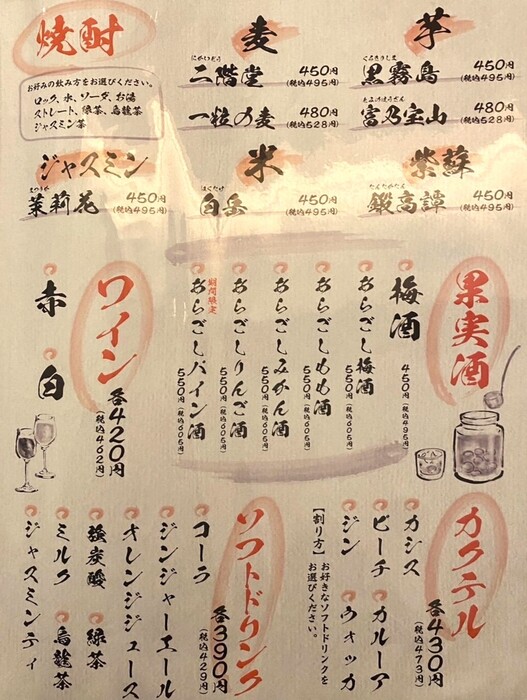 焼酎
お好みの飲み方をお選びください。
ロック、水、ソーダ、お湯
ストレート、緑茶、烏龍茶
ジャスミン茶
麦
にかいどう
二階堂 450円
(税込495円)
一粒の麦 480円
(税込528円)
芋
くろきりしま
黒霧島 450円
(税込495円)
とみのほうざん
富乃宝山 480円
(税込528円)
ジャスミン
まつりか
茉莉花 450円
(税込495円)
米
はくたけ
白岳 450円
(税込495円)
紫蘇
たんたかたん
鍛高譚 450円
(税込495円)
果実酒
梅酒 450円(税込495円)
あらごし梅酒 550円(税込605円)
あらごしもも酒 550円(税込605円)
あらごしみかん酒 550円(税込605円)
あらごしりんご酒 550円(税込605円)
期間限定
あらごしパイン酒 550円(税込605円)
ワイン
各420円
(税込462円)
赤
白
カクテル
各430円
(税込473円)
カシス
カルーア
ピーチ
ウォッカ
ジン
【割り方】お好きなソフトドリンクを
お選びください。
ソフトドリンク
各390円
(税込429円)
コーラ
ジンジャーエール
オレンジジュース
強炭酸
緑茶
ミルク
烏龍茶
ジャスミンティ